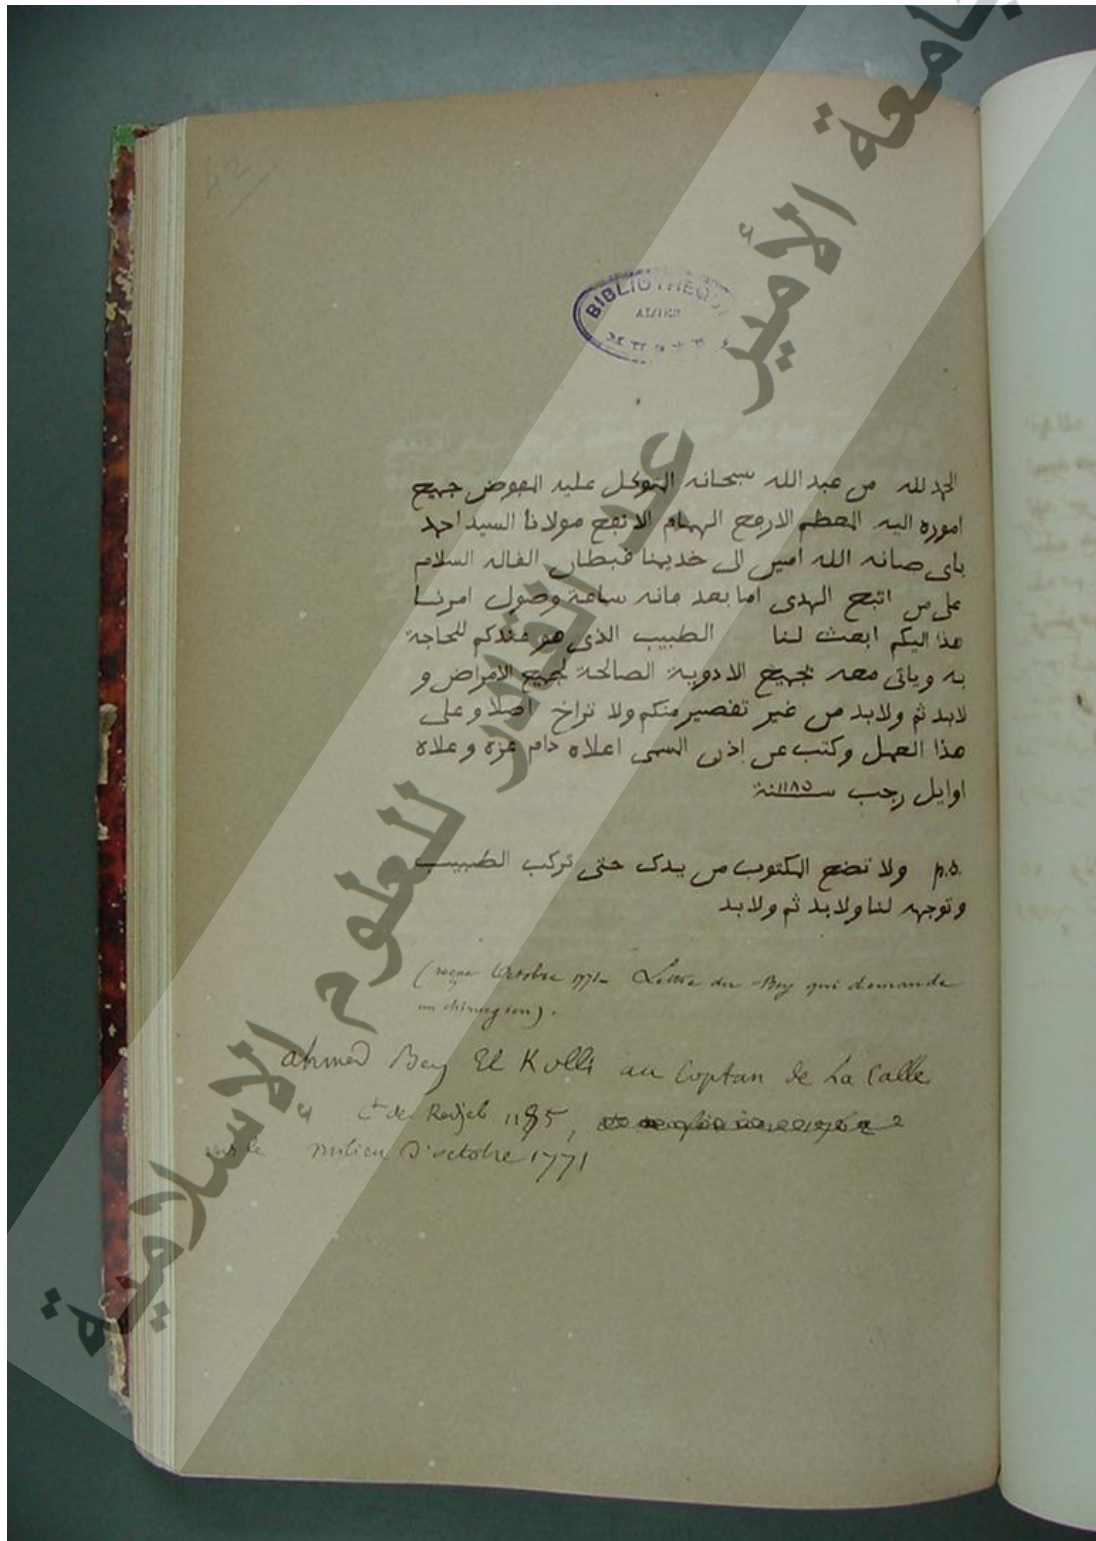 42
BIBLIOTHEQUE
ALGER
الحمد لله من عبد الله سبحانه المتوكل عليه المفوض جميع
اموره اليه المعظم الارفع الهمام الانفع مولانا السيد احمد
باي صانه الله امين الى خديمنا قبطان القاله السلام
على من اتبع الهدى اما بعد فانه ساعة وصول امرنا
هذا اليكم ابعث لنا الطبيب الذي هو عندكم للحاجة
به وياتي معه بجميع الادوية الصالحة لجميع الامراض و
لابد ثم ولابد من غير تقصير منكم ولا تراخ اصلا وعلى
هذا العمل وكتب عن اذن المسمى اعلاه دام عزه وعلاه
اوايل رجب سنة ١١٨٥
p.s. ولا تضع المكتوب من يدك حتى تركب الطبيب
وتوجهه لنا ولابد ثم ولابد
(reçue Octobre 1771 - Lettre du Bey qui demande
un chirurgien).
Ahmed Bey El Kolli au Coptan de La Calle
de Redjeb 1185,
milieu d'octobre 1771
جامعة الأمير عبد القادر للعلوم الإسلامية